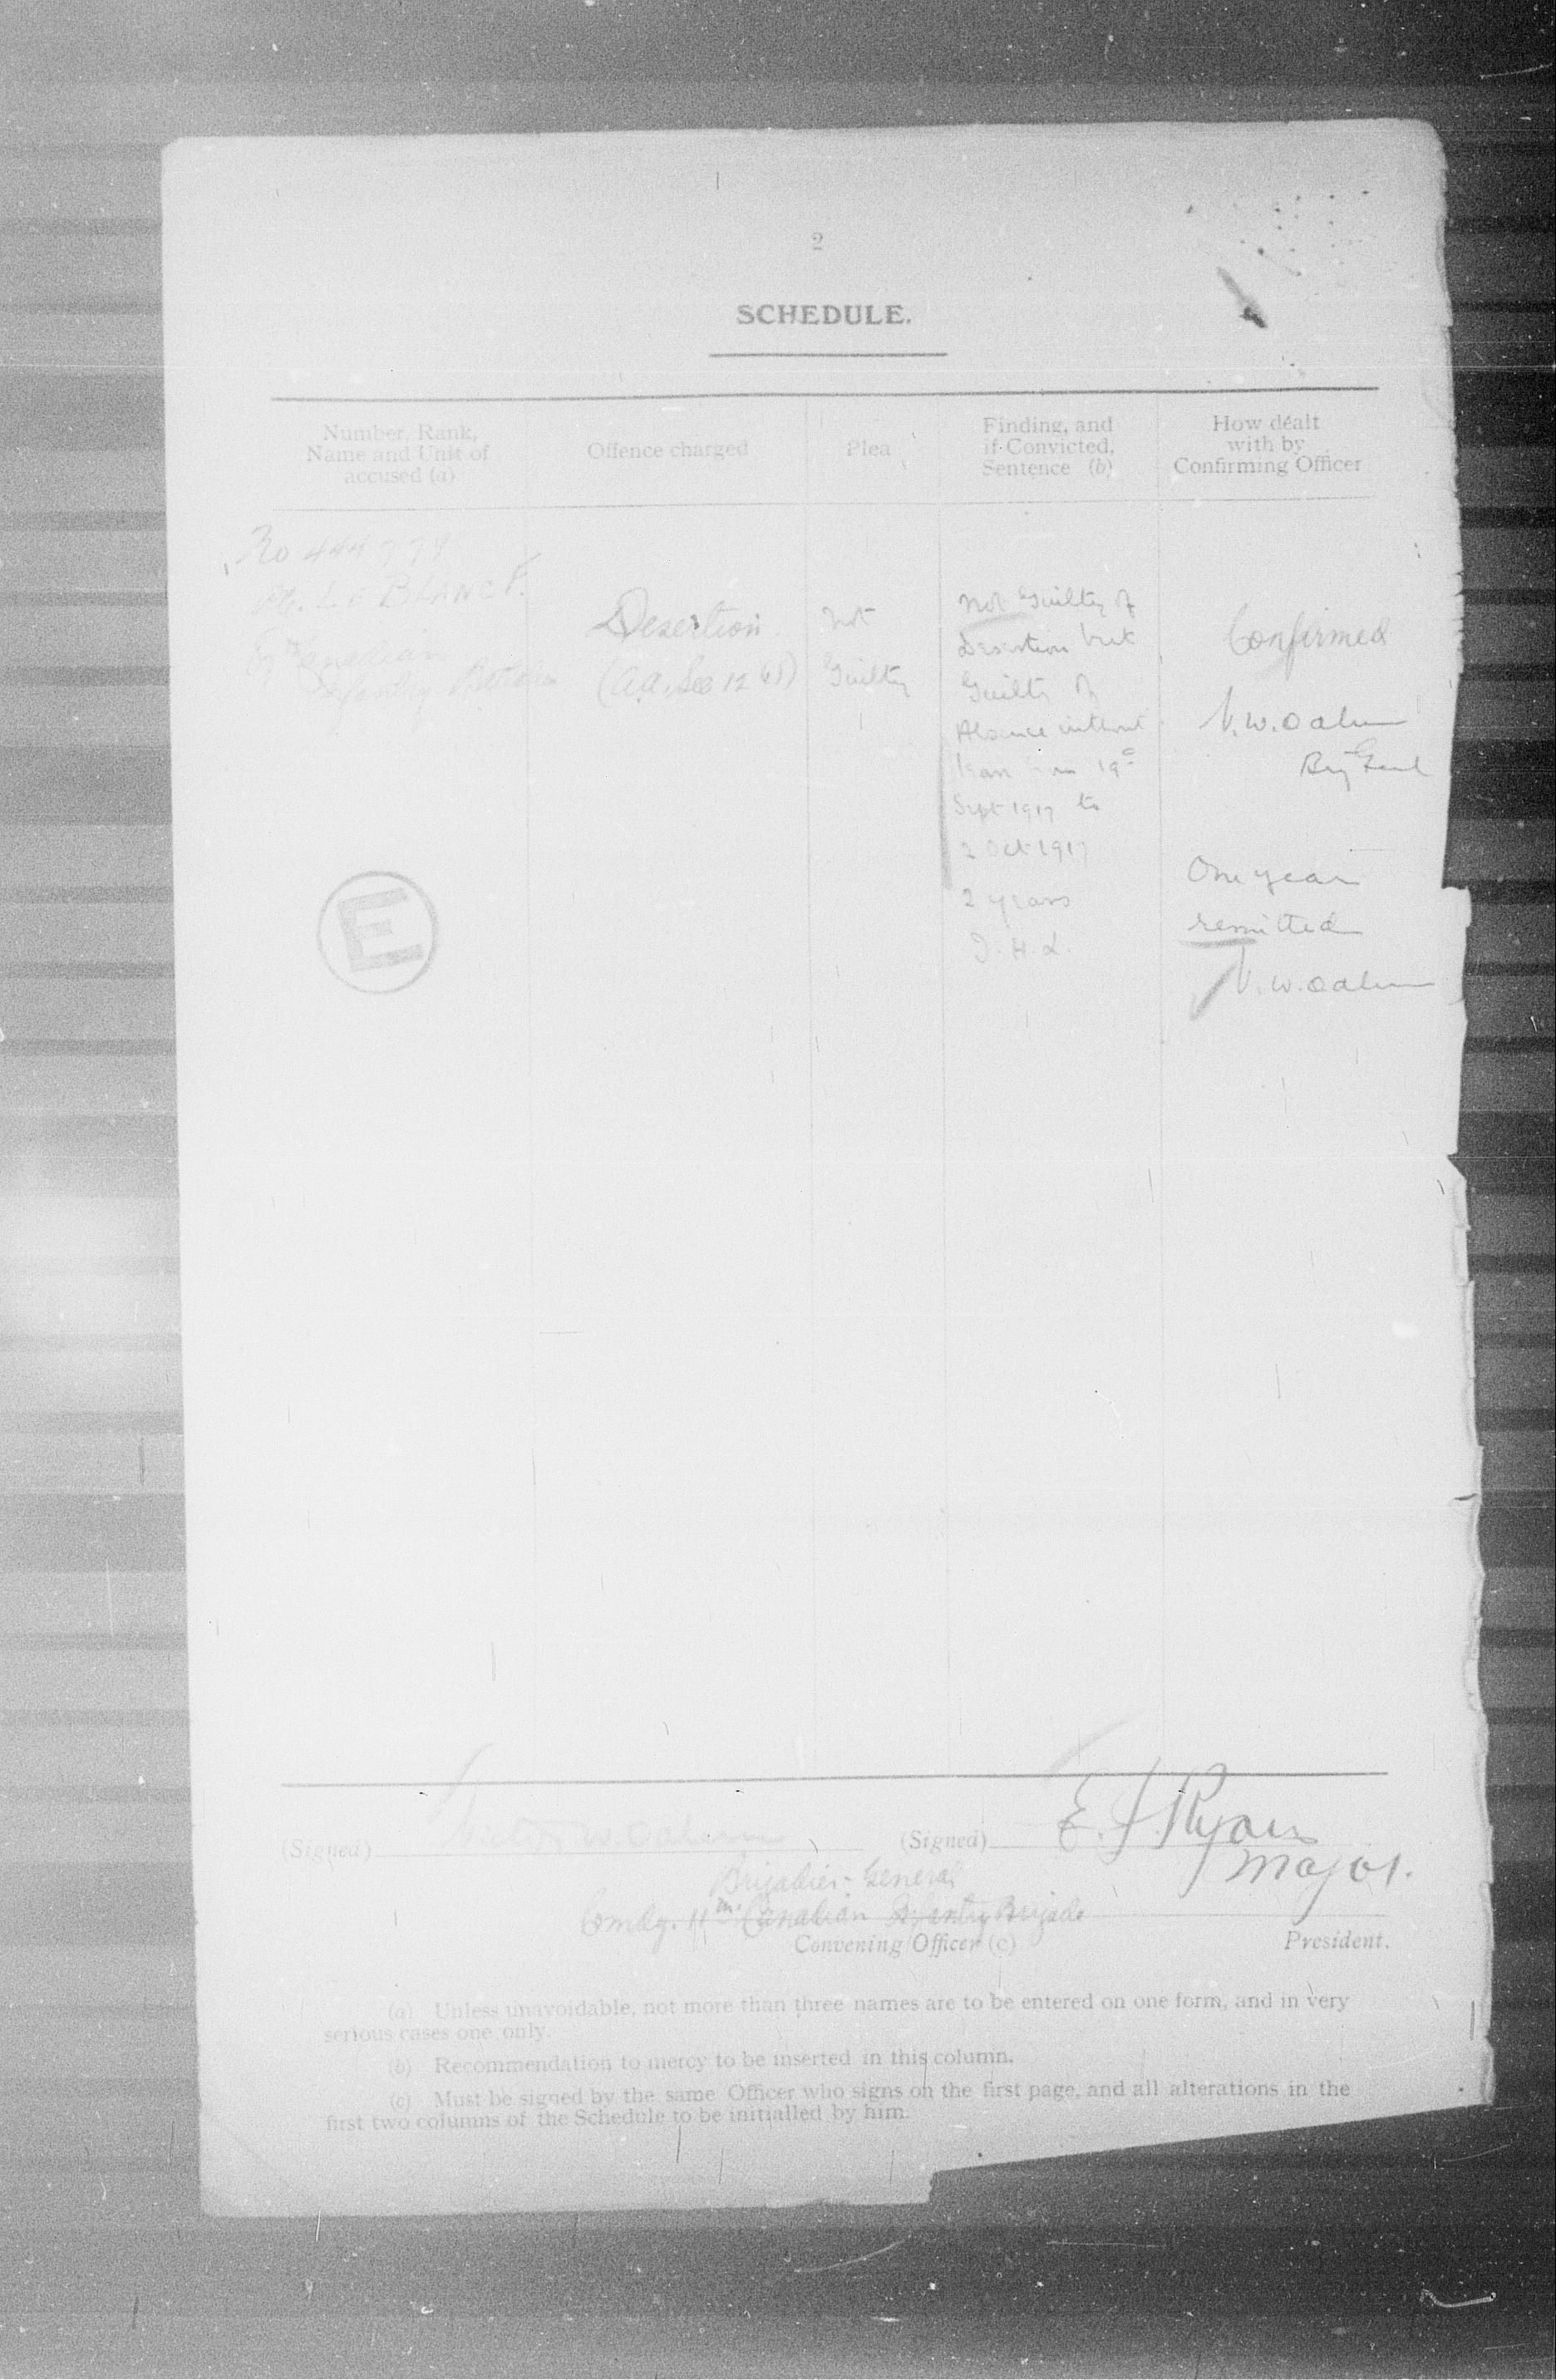 2
SCHEDULE.
Number, Rank,
Name and Unit of
accused (a)
Offence charged
Plea
Finding, and
if Convicted,
Sentence (b)
How dealt
with by
Confirming Officer
No 444779
Pte. LE BLANC F.
Canadian
Infantry Battalion
Desertion.
(A.A. Sec 12
Not
Guilty
Not Guilty of
Desertion but
Guilty of
Absence without
leave from 19
Sept 1917 to
2 Oct 1917
2 years
I. H. L.
Confirmed
V. W. Odlum
Brig Genl
One year
remitted
V. W. Odlum
E
(Signed) Victor W. Odlum
Brigadier-General
Comdg. 11th Canadian Infantry Brigade
Convening Officer (c)
(Signed) E. J. Ryan
Major.
President.
(a) Unless unavoidable, not more than three names are to be entered on one form, and in very
serious cases one only.
(b) Recommendation to mercy to be inserted in this column.
(c) Must be signed by the same Officer who signs on the first page, and all alterations in the
first two columns of the Schedule to be initialled by him.